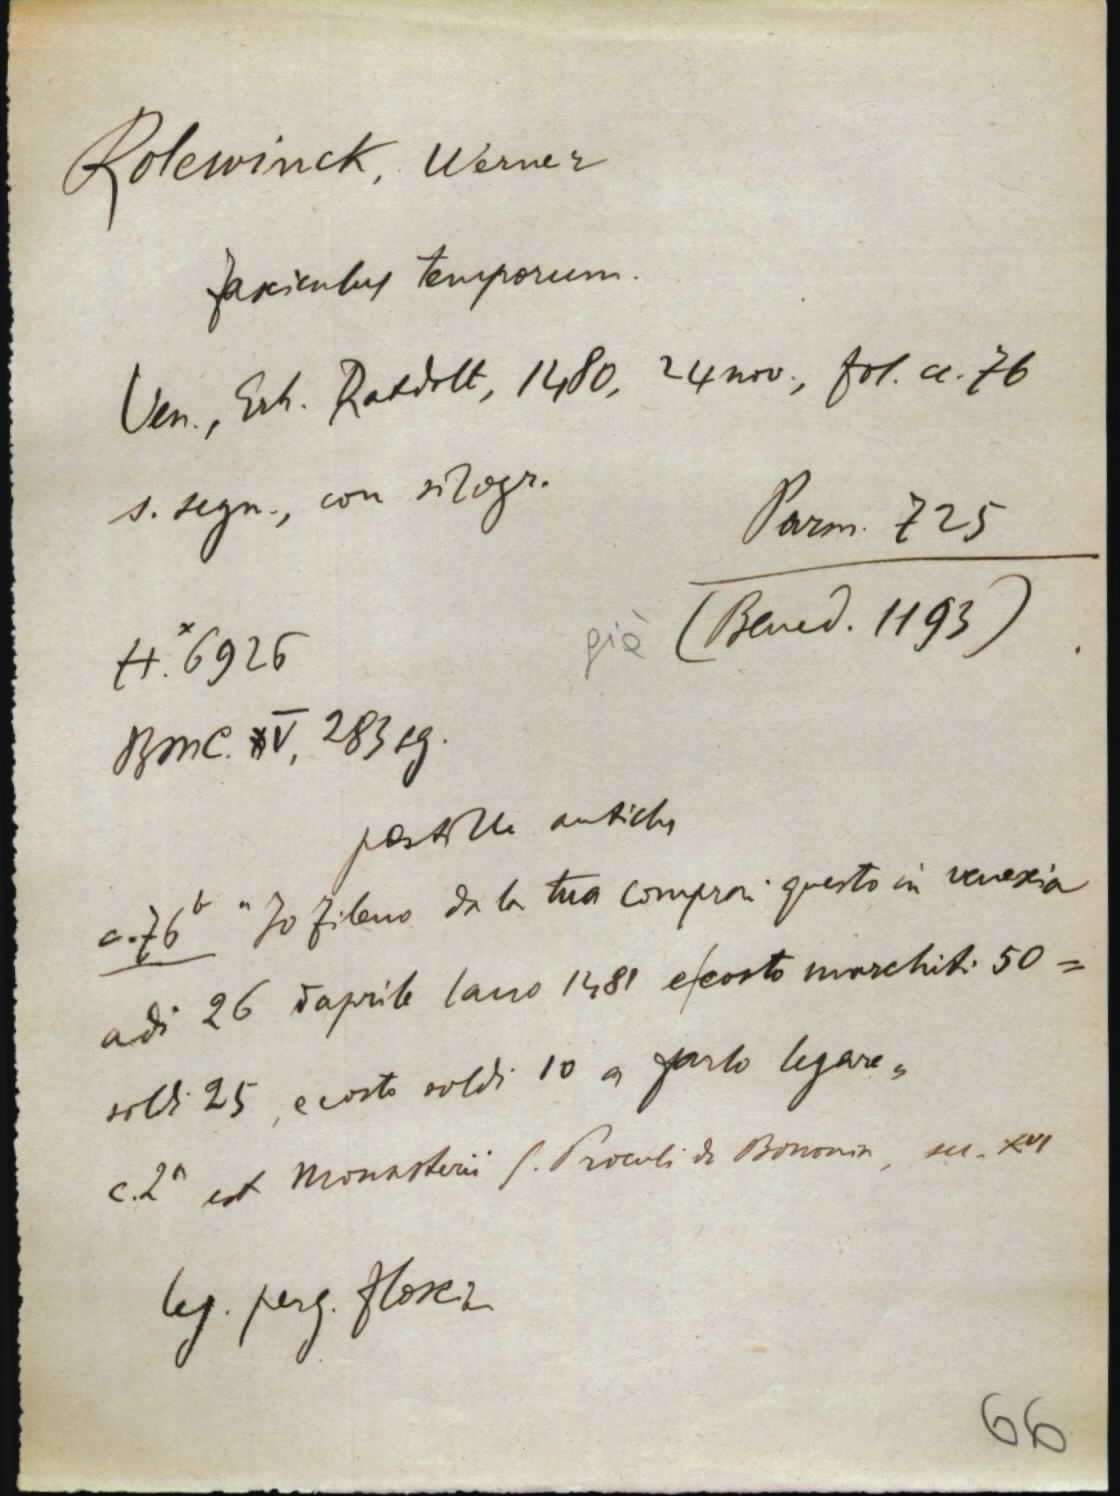 Rolewinck, Werner
fasciculus temporum.
Ven., Erh. Ratdolt, 1480, 24 nov., fol. cc. 76
s. segn., con silogr.
Parm. 725
già (Bened. 1193)
H.* 6926
BMC. V, 283 sg.
postille antiche
c. 76 b " Jo fileno da la tua comprai questo in venexia
adi 26 daprile lano 1481 e costo marcheti 50 =
soldi 25, e costo soldi 10 a farlo legare "
c. 2 a est Monasterii S. Proculi de Bononia, sec. XVI
leg. perg. floscia
66